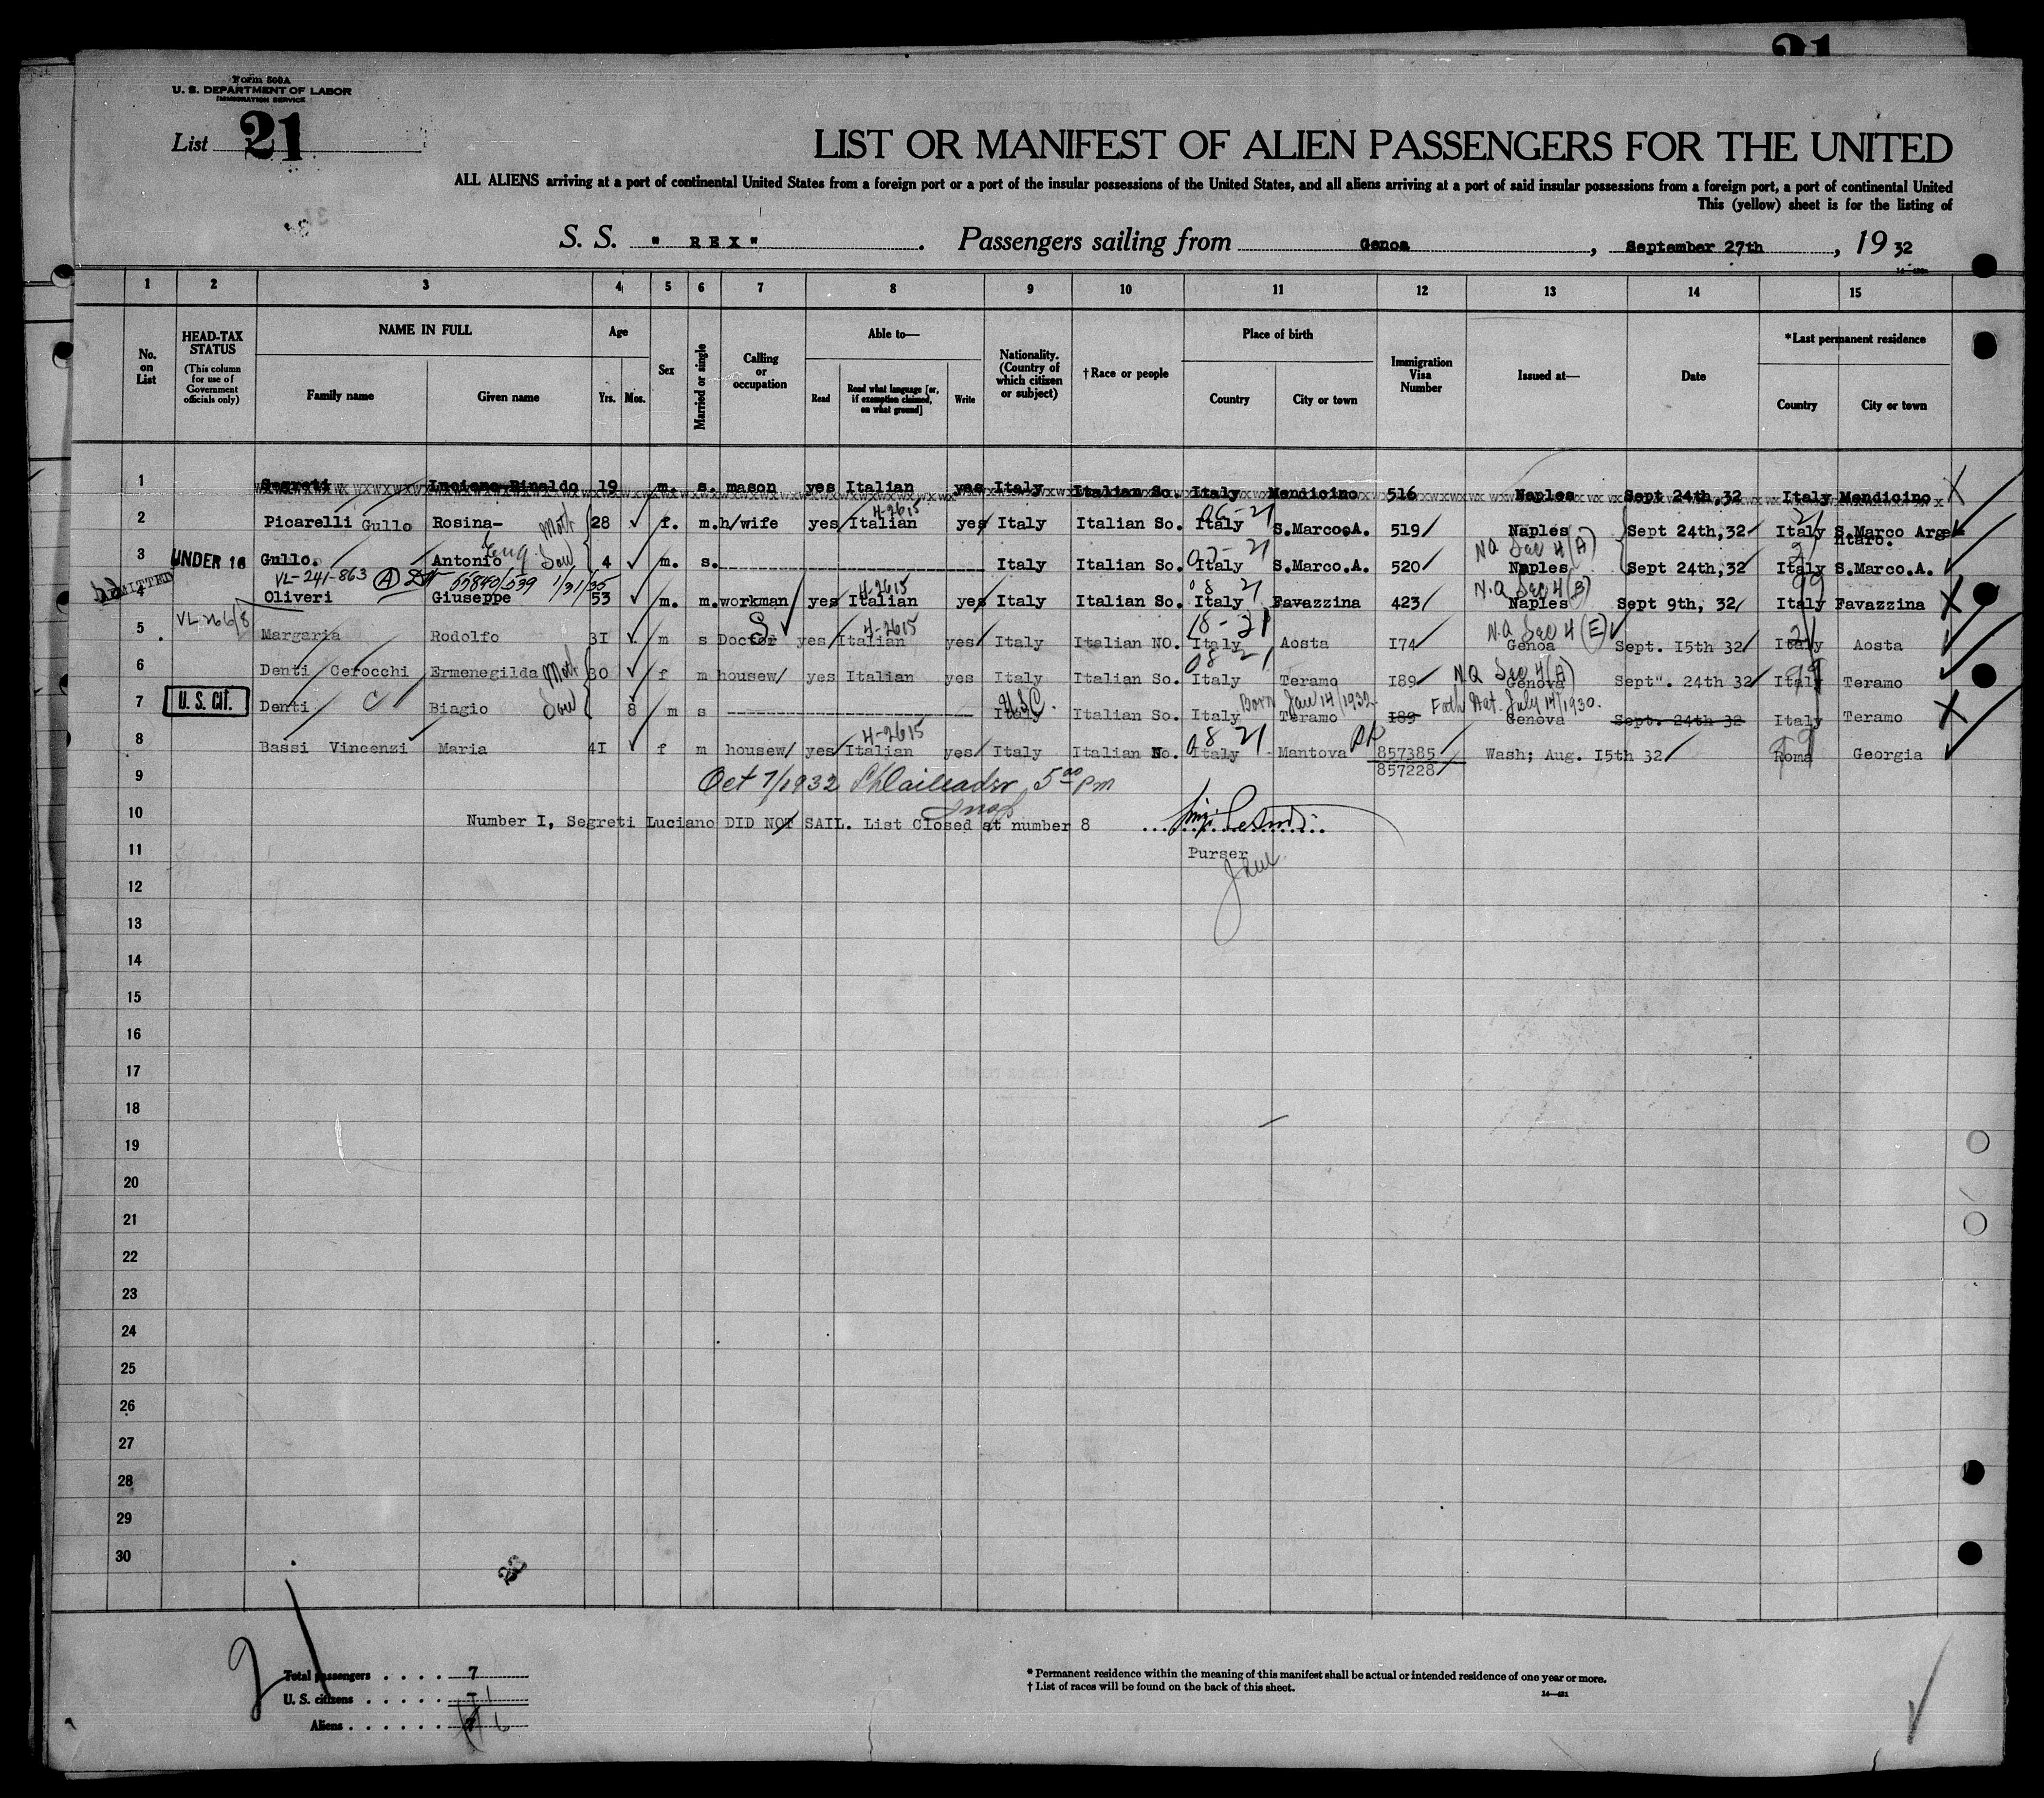 21
Form 500A
U. S. DEPARTMENT OF LABOR
IMMIGRATION SERVICE
List 21
LIST OR MANIFEST OF ALIEN PASSENGERS FOR THE UNITED
ALL ALIENS arriving at a port of continental United States from a foreign port or a port of the insular possessions of the United States, and all aliens arriving at a port of said insular possessions from a foreign port, a port of continental United
This (yellow) sheet is for the listing of
S. S. " REX " . Passengers sailing from Genoa , September 27th , 19 32
1 2 3 4 5 6 7 8 9 10 11 12 13 14 15
No. on List
HEAD-TAX STATUS (This column for use of Government officials only)
NAME IN FULL Family name Given name
Age Yrs. Mos.
Sex
Married or single
Calling or occupation
Able to— Read Read what language [or, if exemption claimed, on what ground] Write
Nationality. (Country of which citizen or subject)
†Race or people
Place of birth Country City or town
Immigration Visa Number
Issued at—
Date
*Last permanent residence Country City or town
1 Segreti Luciano Rinaldo 19 m. s. mason yes Italian yes Italy Italian So. Italy Mendicino 516 Naples Sept 24th,32 Italy Mendicino X
4-2615
2 Picarelli Gullo Rosina- Moth 28 f. m. h/wife yes Italian yes Italy Italian So. Italy S.Marco.A. 519 Naples Sept 24th,32 Italy S.Marco Arge
ntaro.
NQ Sec 4 (A)
3 UNDER 16 Gullo. Antonio Son 4 m. s. Italy Italian So. Italy S.Marco.A. 520 Naples Sept 24th,32 Italy S.Marco.A.
ADMITTED VL-241-863 (A) 55840/539 1/31/35 4-2615 N.Q Sec 4 (B)
4 Oliveri Giuseppe 53 m. m. workman yes Italian yes Italy Italian So. Italy Favazzina 423 Naples Sept 9th, 32 Italy Favazzina X
4-2615 18-21 N.Q Sec 4 (E)
5 Margaria Rodolfo 3I m s Doctor yes Italian yes Italy Italian NO. Italy Aosta I74 Genoa Sept. I5th 32 Italy Aosta
NQ Sec 4 (A)
6 Denti Cerocchi Ermenegilda Moth 30 f m housew/ yes Italian yes Italy Italian So. Italy Teramo I89 Genova Sept". 24th 32 Italy Teramo
U.S.C. Born Jan 14/1932 Fath Nat. July 14/1930.
7 U. S. CIT. Denti C Biagio Son 8 m s Italy Italian So. Italy Teramo I89 Genova Sept. 24th 32 Italy Teramo X
4-2615
8 Bassi Vincenzi Maria 4I f m housew/ yes Italian yes Italy Italian No. Italy Mantova 857385 Wash; Aug. I5th 32 Roma Georgia
857228
9 Oct 7/1932 5 00 PM
10 Number I, Segreti Luciano DID NOT SAIL. List Closed at number 8
11 Purser
12
13
14
15
16
17
18
19
20
21
22
23
24
25
26
27
28
29
30
21
Total passengers . . . . 7
U. S. citizens . . . . . - 1
Aliens . . . . . . 7 6
* Permanent residence within the meaning of this manifest shall be actual or intended residence of one year or more.
† List of races will be found on the back of this sheet.